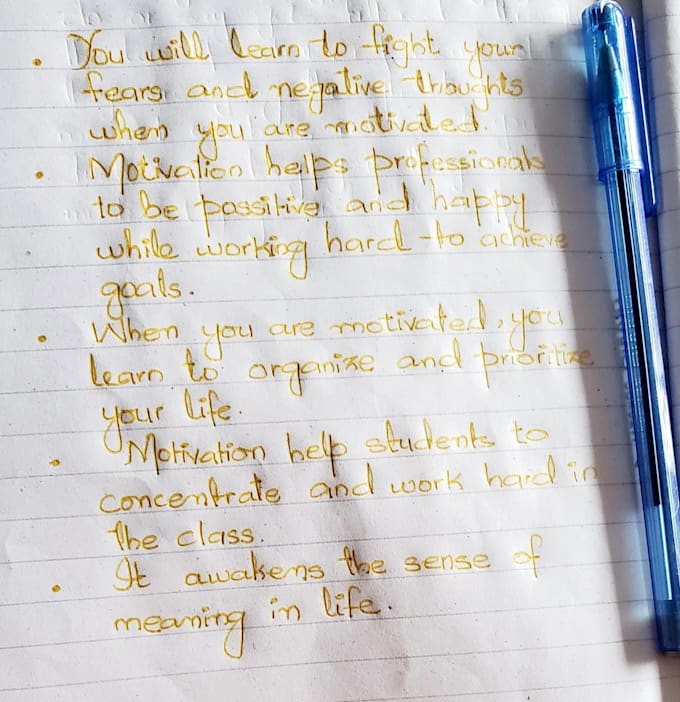 • You will learn to fight your
fears and negative thoughts
when you are motivated.
• Motivation helps professionals
to be possitive and happy
while working hard to achieve
goals.
• When you are motivated, you
learn to organize and prioritize
your life.
• Motivation help students to
concentrate and work hard in
the class.
• It awakens the sense of
meaning in life.